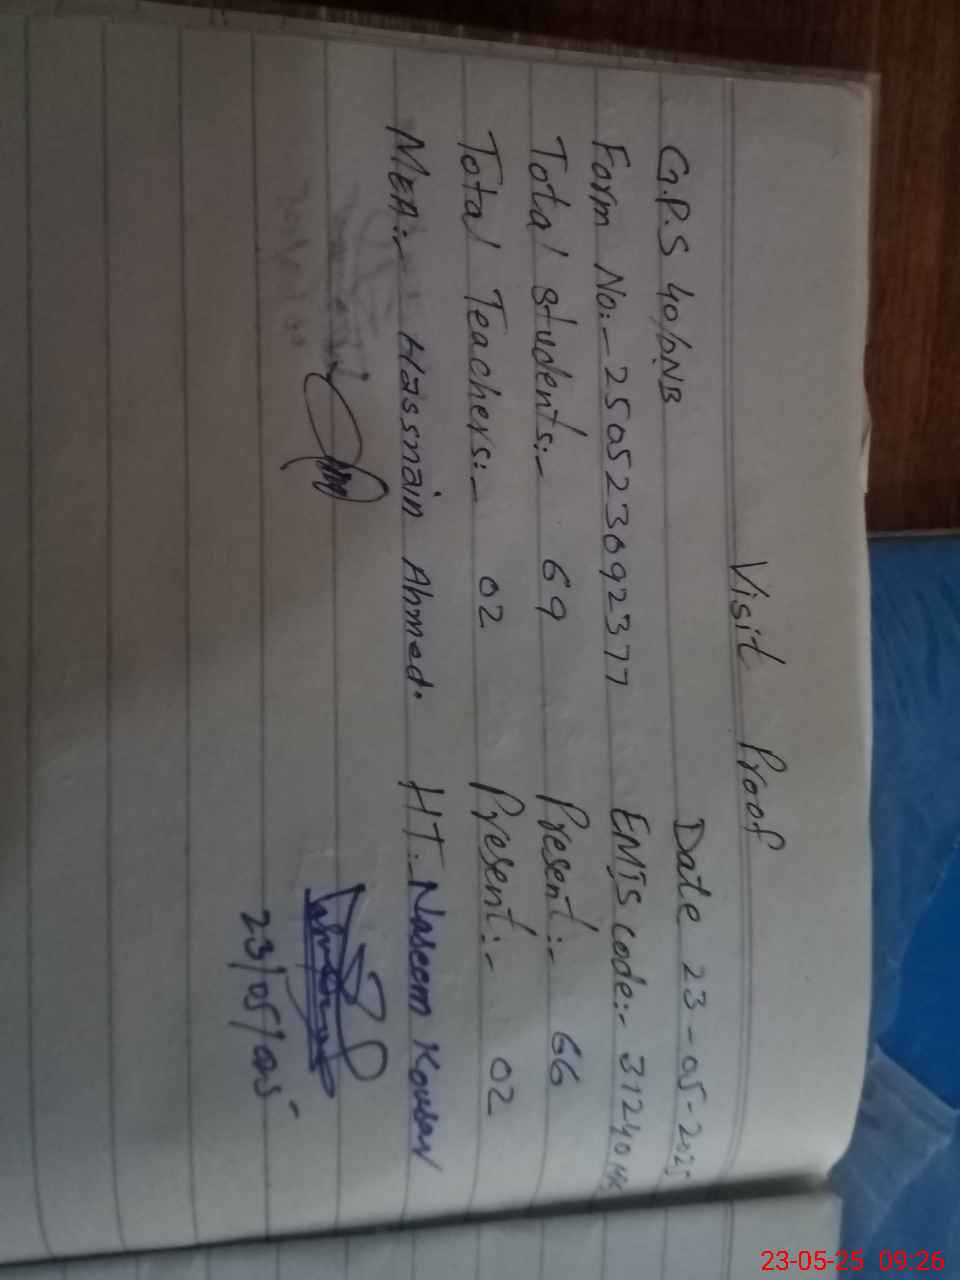 Visit Proof
G.P.S 40/DNB Date 23-05-2025
Form No:- 250523092377 EMIS code:- 31240
Total students:- 69 Present:- 66
Total Teachers:- 02 Present:- 02
MEA:- Hassnain Ahmed. HT:- Naseem Kousar
23/05/
23-05-25 09:26